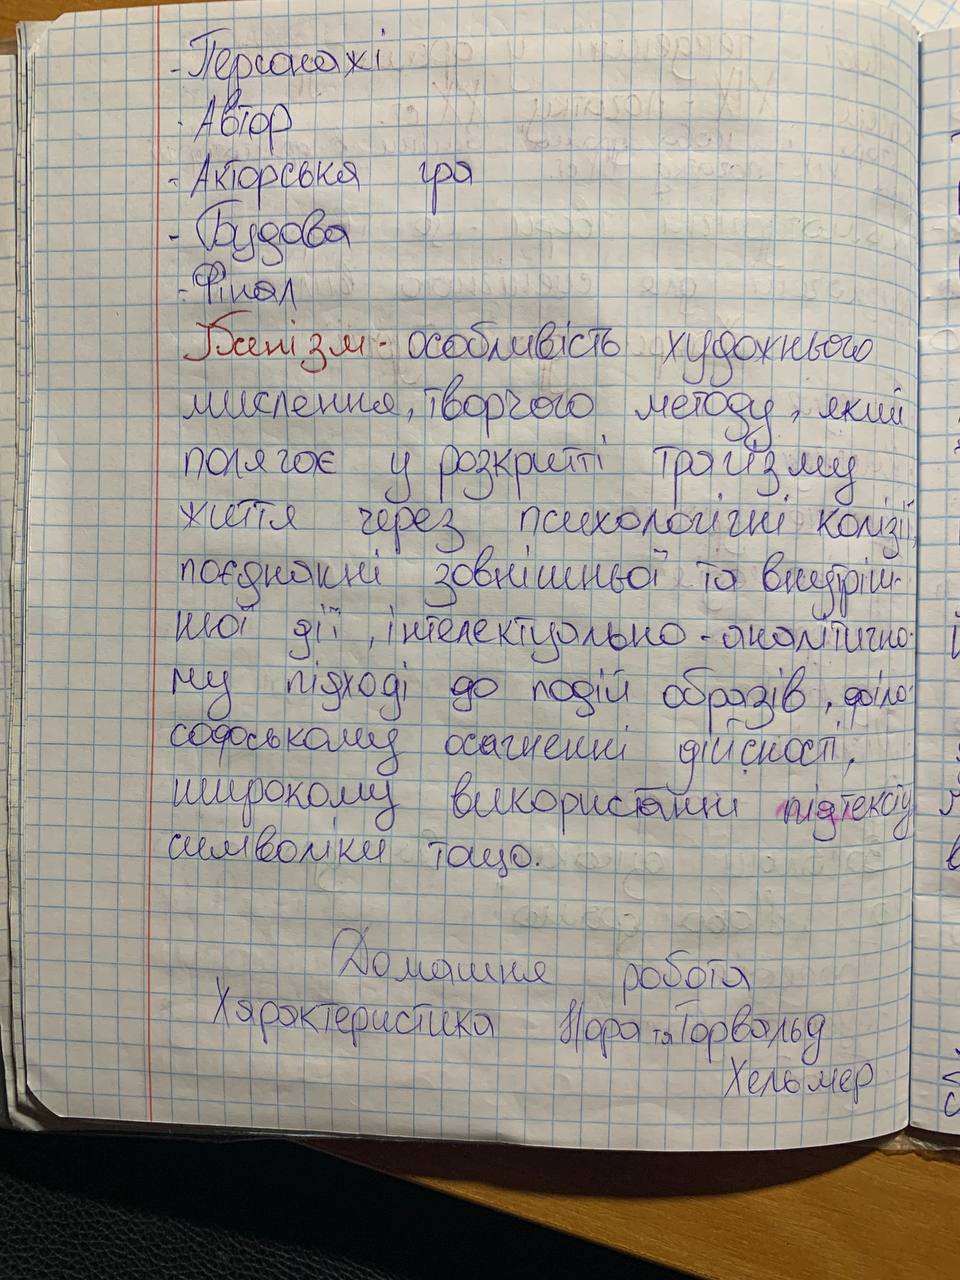 - Персонажі
- Автор
- Акторська гра
- Будова
- Фінал
Їбсенізм - особливість художнього
мислення, творчого методу, який
полягає у розкритті трагізму
життя через психологічні колізії,
поєднанні зовнішньої та внутріш-
ньої дії, інтелектуально-аналітично-
му підході до подій образів, філо-
софському осягненні дійсності,
широкому використанні підтексту
символіки тощо.
Домашня робота
Характеристика Нора та Торвальд
Хельмер